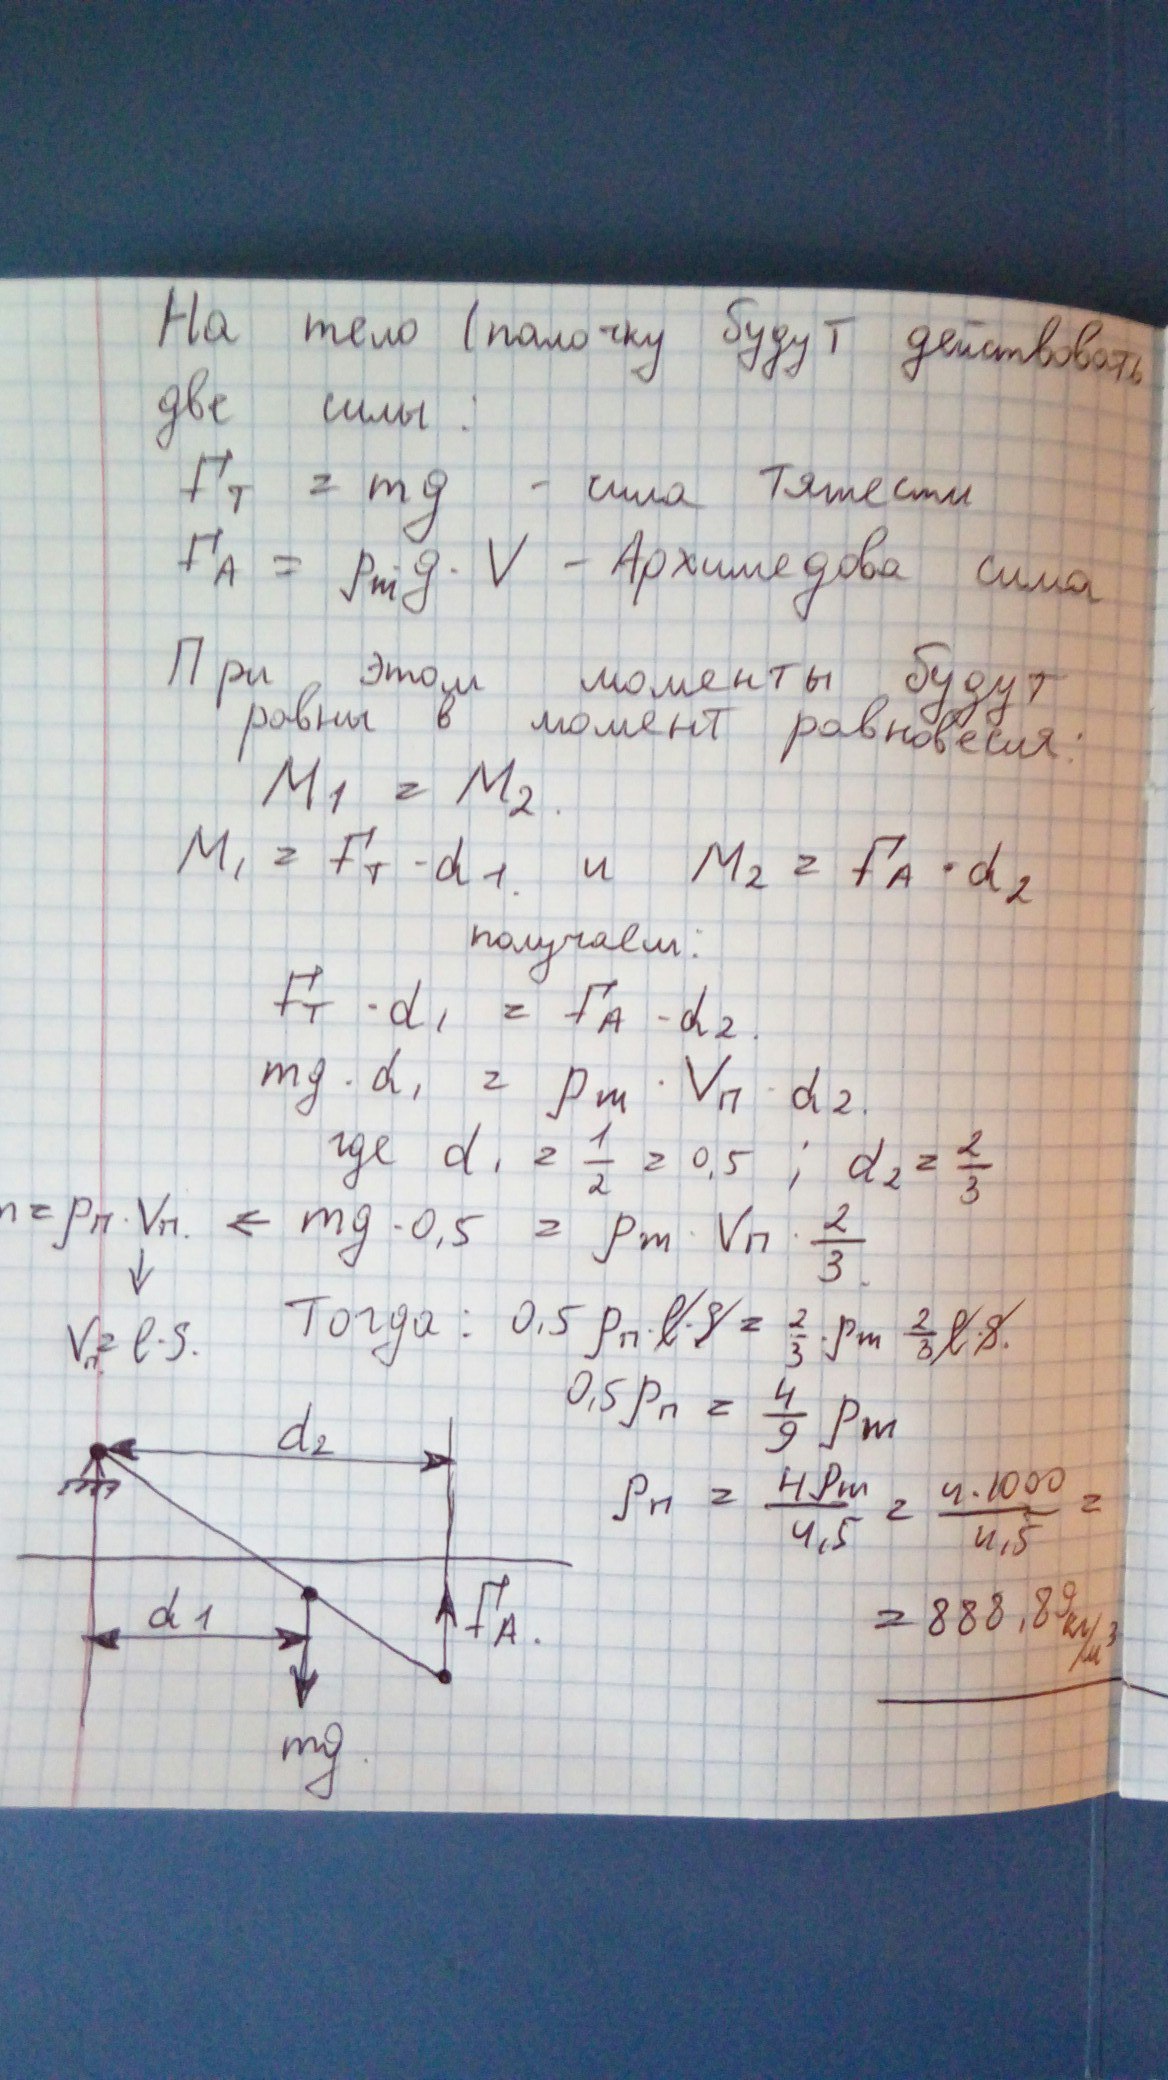 На тело (палочку будут действовать
две силы:
Fт = mg - сила тяжести
FА = ρж g · V - Архимедова сила
При этом моменты будут
равны в момент равновесия:
M1 = M2.
M1 = Fт · d1. и M2 = FА · d2
получаем:
Fт · d1 = FА · d2.
mg · d1 = ρж · Vп · d2.
где d1 = 1/2 = 0,5 ; d2 = 2/3
m = ρп · Vп. ← mg · 0,5 = ρж · Vп · 2/3.
↓
Vп = l·S.
Тогда: 0,5 ρп · l · S = 2/3 · ρж 2/3 l · S.
0,5 ρп = 4/9 ρж
ρп = 4ρж/4,5 = 4·1000/4,5 =
= 888,89 кг/м³
d2
d1
FА.
mg.